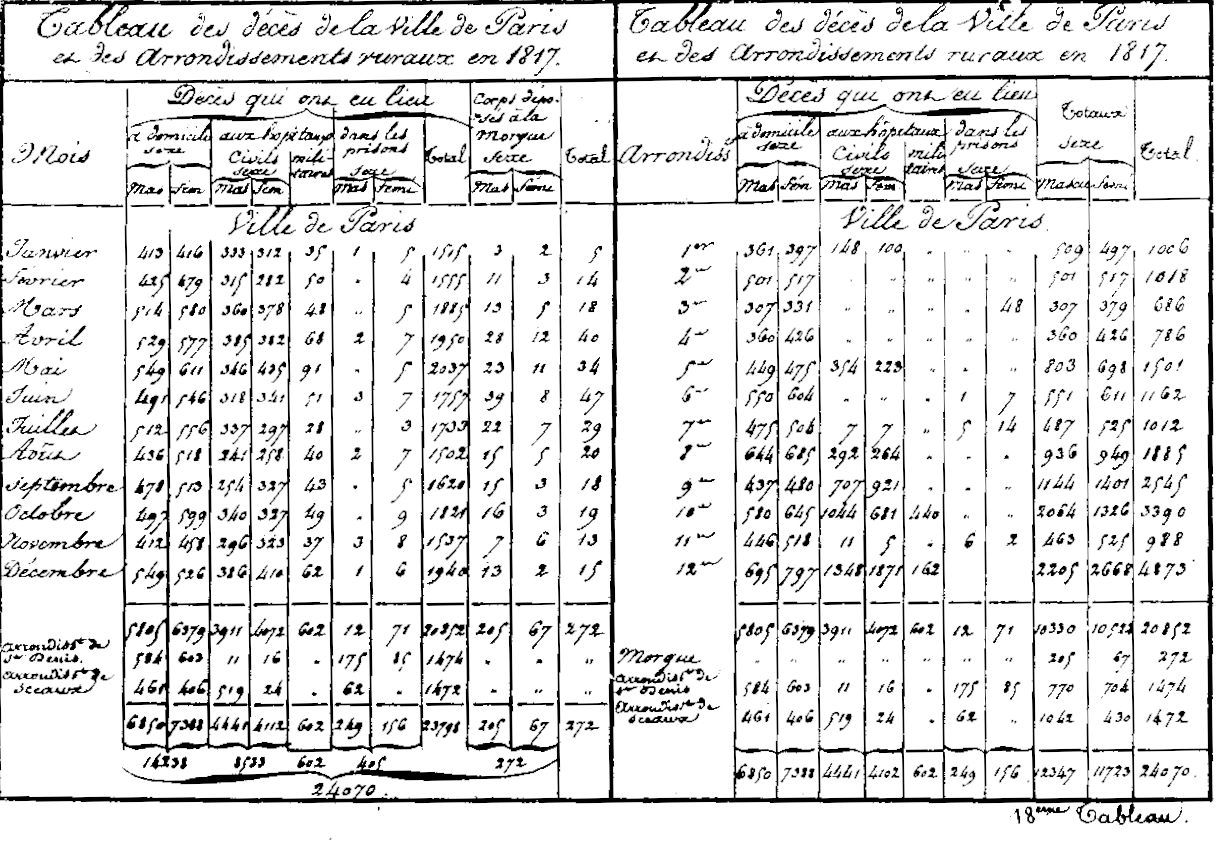 Tableau des décès de la Ville de Paris
et des Arrondissements ruraux en 1817.
Mois
Décès qui ont eu lieu
Corps déposés à la Morgue
à domicile sexe
aux hôpitaux
dans les prisons
Civils sexe
militaires
sexe
Total
sexe
Total
Mas Fém Mas Fém Mas Féme Mas Féme
Ville de Paris
Janvier 413 416 333 312 35 1 5 1515 3 2 5
Février 425 479 315 282 50 " 4 1555 11 3 14
Mars 514 580 360 378 48 " 5 1885 13 5 18
Avril 529 577 385 382 68 2 7 1950 28 12 40
Mai 549 611 346 435 91 " 5 2037 23 11 34
Juin 491 546 318 341 51 3 7 1757 39 8 47
Juillet 512 556 337 297 28 " 3 1733 22 7 29
Août 436 518 241 258 40 2 7 1502 15 5 20
Septembre 478 513 254 327 43 " 5 1620 15 3 18
Octobre 497 599 340 327 49 " 9 1821 16 3 19
Novembre 412 458 296 323 37 3 8 1537 7 6 13
Décembre 549 526 386 410 62 1 6 1940 13 2 15
5805 6379 3911 4072 602 12 71 20852 205 67 272
Arrondisst. de St. Denis. 584 603 11 16 " 175 85 1474 " " "
Arrondisst. de Sceaux 461 406 519 24 " 62 " 1472 " " "
6850 7388 4441 4112 602 249 156 23798 205 67 272
14238 8533 602 405 272
24070.
Tableau des décès de la Ville de Paris
et des Arrondissements ruraux en 1817.
Arrondiss
Décès qui ont eu lieu
Totaux
à domicile sexe
aux hôpitaux
dans les prisons
sexe
Civils sexe
militaires
sexe
Total
Mas Fém Mas Fém Mas Féme Mascu Féme
Ville de Paris.
1er 361 397 148 100 " " " 509 497 1006
2me 501 517 " " " " " 501 517 1018
3me 307 331 " " " " 48 307 379 686
4me 360 426 " " " " " 360 426 786
5me 449 475 354 223 " " " 803 698 1501
6me 550 604 " " " 1 7 551 611 1162
7me 475 504 7 7 " 5 14 487 525 1012
8me 644 685 292 264 " " " 936 949 1885
9me 437 480 707 921 " " " 1144 1401 2545
10me 580 645 1044 681 440 " " 2064 1326 3390
11me 446 518 11 5 " 6 2 463 525 988
12me 695 797 1348 1871 162 2205 2668 4873
5805 6379 3911 4072 602 12 71 10330 10522 20852
Morgue " " " " " " " 205 67 272
Arrondisst. de St. Denis 584 603 11 16 " 175 85 770 704 1474
Arrondisst. de Sceaux 461 406 519 24 " 62 " 1042 430 1472
6850 7388 4441 4102 602 249 156 12347 11723 24070.
18eme Tableau.